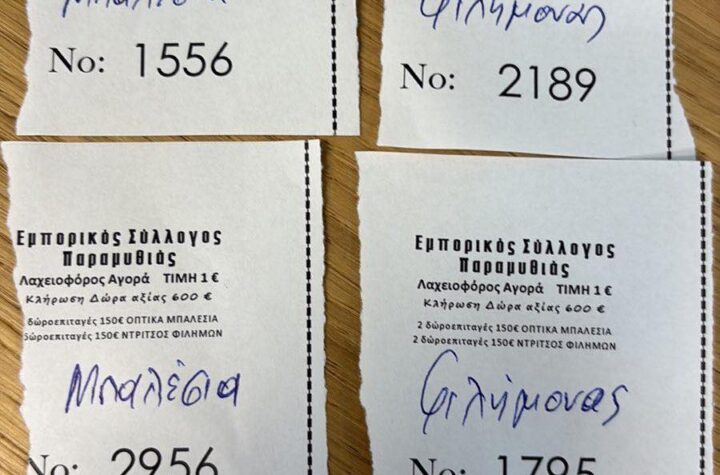 Μπαλέσια
Νο: 1556
Φιλήμονας
Νο: 2189
Εμπορικός Σύλλογος
Παραμυθιάς
Λαχειοφόρος Αγορά ΤΙΜΗ 1 €
Κλήρωση Δώρα αξίας 600 €
δώροεπιταγές 150€ ΟΠΤΙΚΑ ΜΠΑΛΕΣΙΑ
δώροεπιταγές 150€ ΝΤΡΙΤΣΟΣ ΦΙΛΗΜΩΝ
Μπαλέσια
Νο: 2956
Εμπορικός Σύλλογος
Παραμυθιάς
Λαχειοφόρος Αγορά ΤΙΜΗ 1 €
Κλήρωση Δώρα αξίας 600 €
2 δώροεπιταγές 150€ ΟΠΤΙΚΑ ΜΠΑΛΕΣΙΑ
2 δώροεπιταγές 150€ ΝΤΡΙΤΣΟΣ ΦΙΛΗΜΩΝ
Φιλήμονας
Νο: 1795